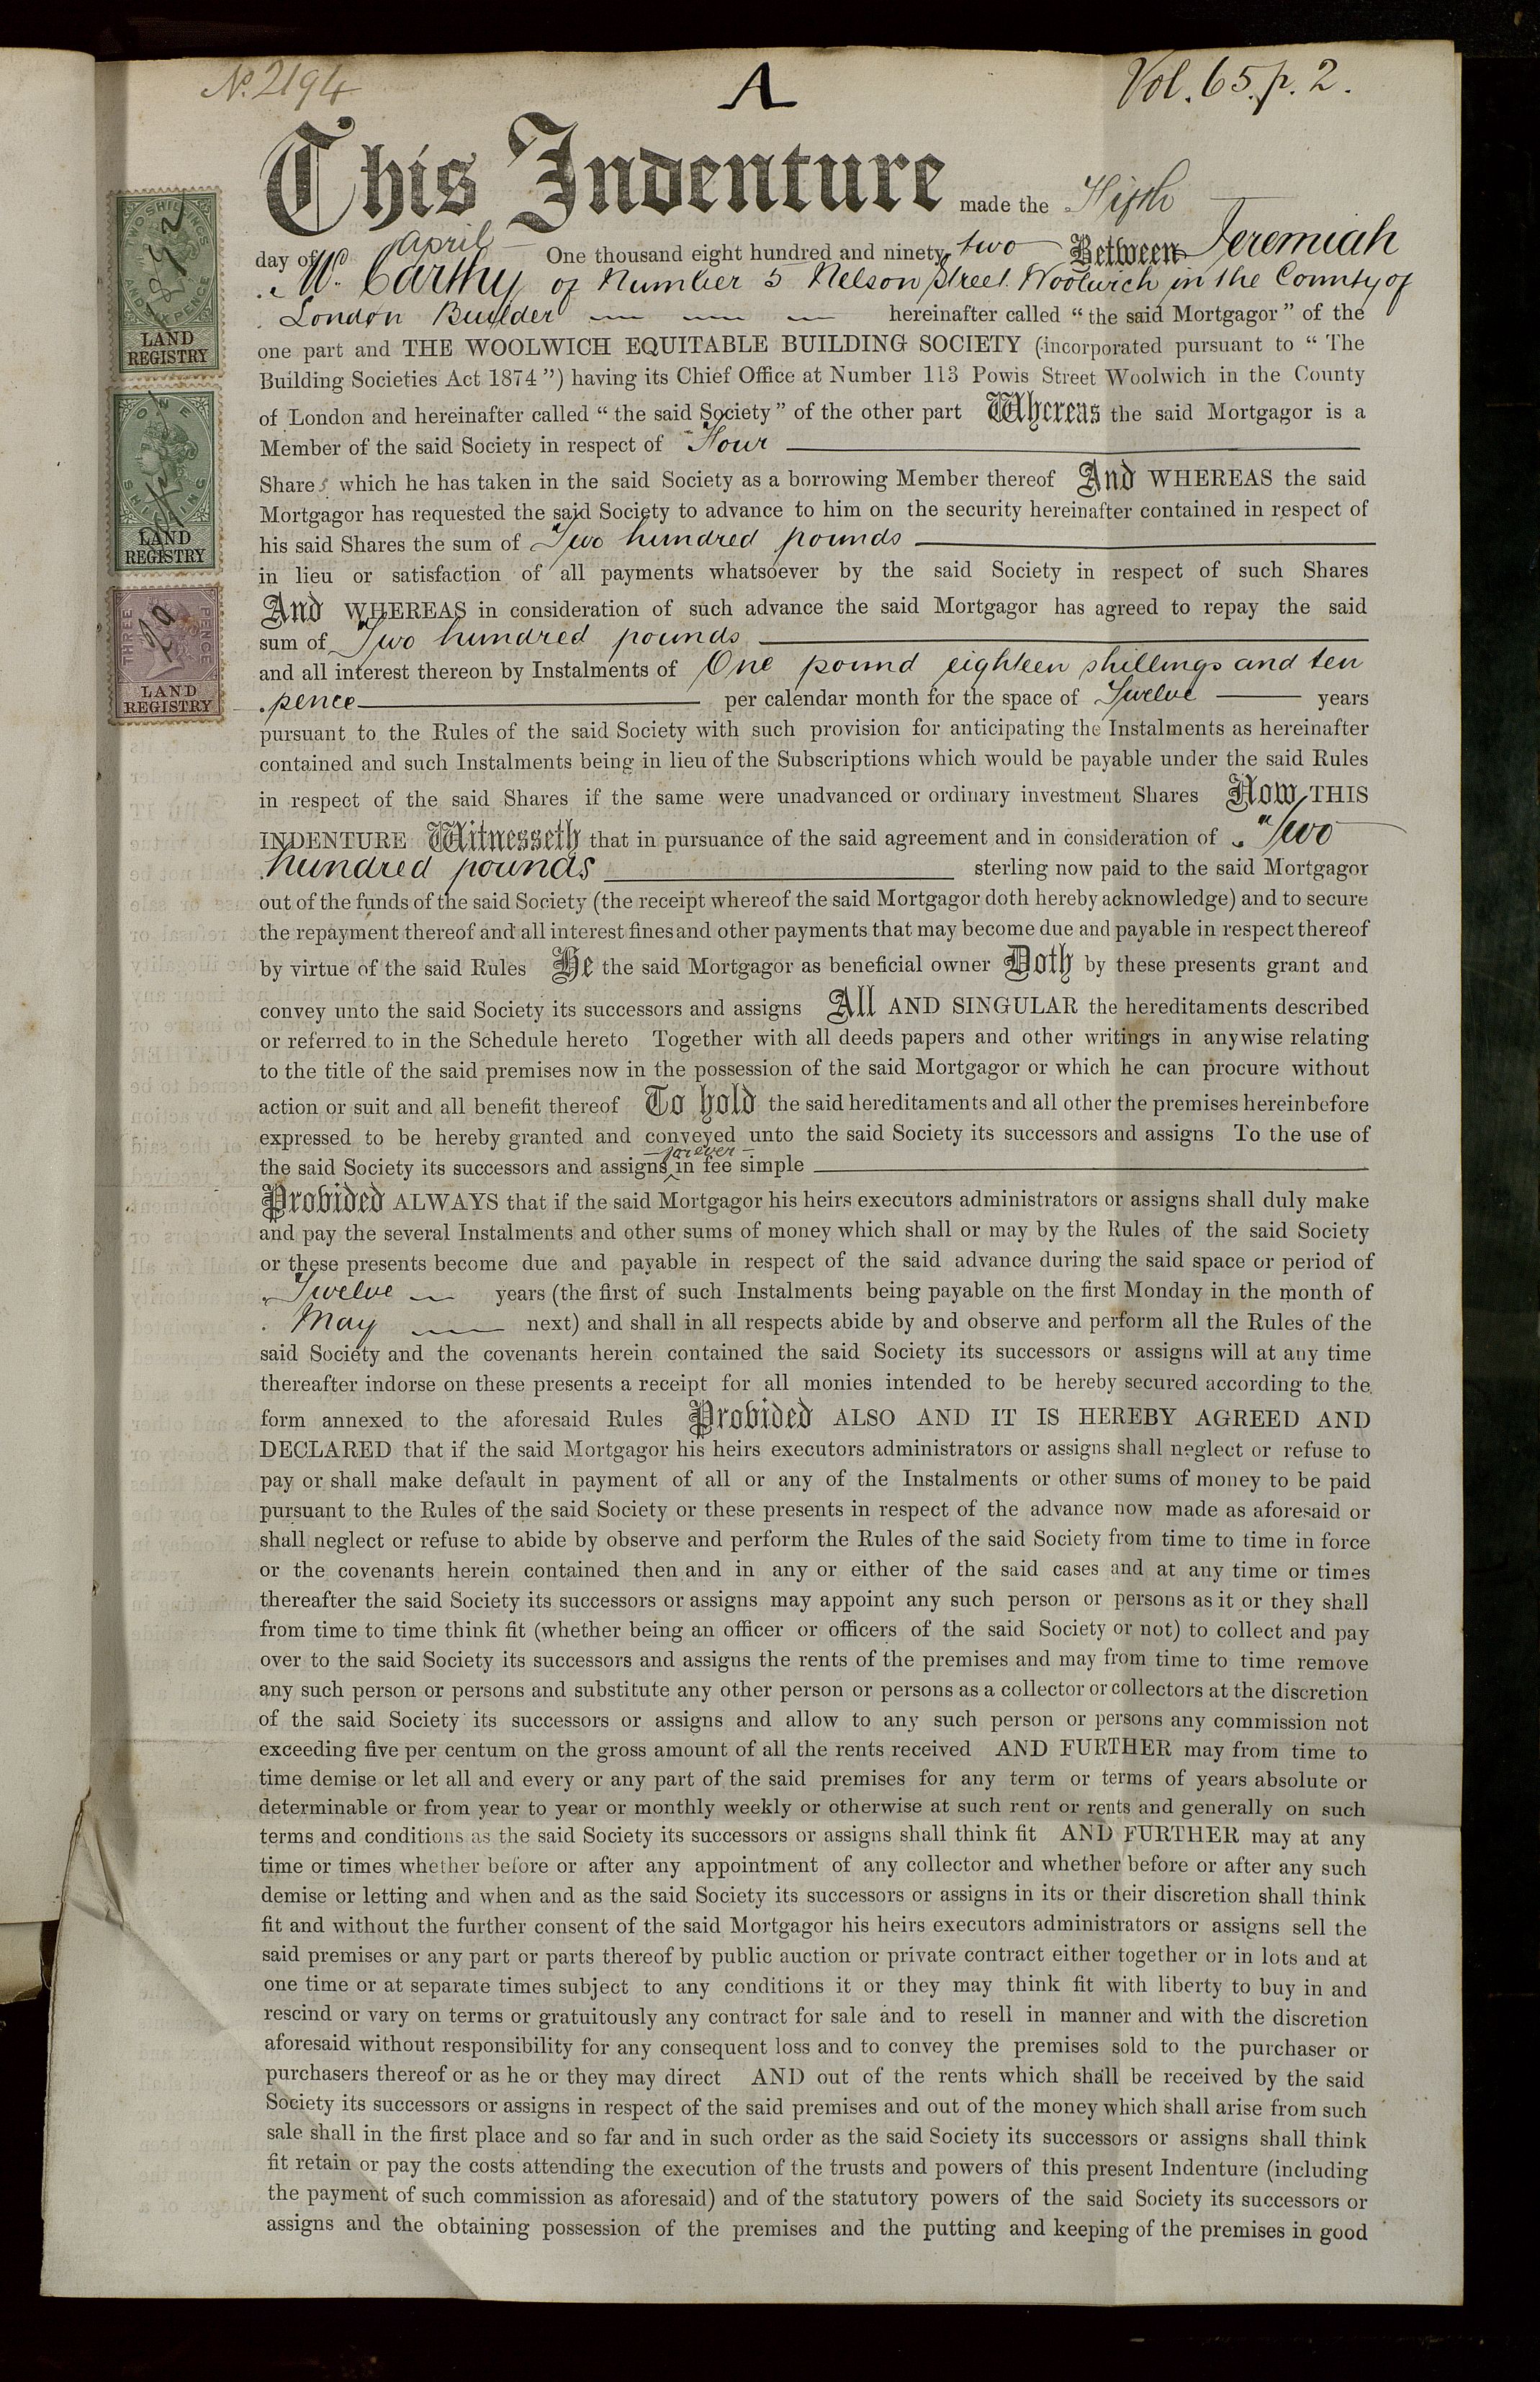 No. 2194
A
Vol. 65. p. 2.
This Indenture made the Fifth
day of April One thousand eight hundred and ninety two Between Jeremiah
Mc. Carthy of Number 5 Nelson Street Woolwich in the County of
London Builder hereinafter called "the said Mortgagor" of the
one part and THE WOOLWICH EQUITABLE BUILDING SOCIETY (incorporated pursuant to "The
Building Societies Act 1874") having its Chief Office at Number 113 Powis Street Woolwich in the County
of London and hereinafter called "the said Society" of the other part Whereas the said Mortgagor is a
Member of the said Society in respect of Four
Shares which he has taken in the said Society as a borrowing Member thereof And WHEREAS the said
Mortgagor has requested the said Society to advance to him on the security hereinafter contained in respect of
his said Shares the sum of Two hundred pounds
in lieu or satisfaction of all payments whatsoever by the said Society in respect of such Shares
And WHEREAS in consideration of such advance the said Mortgagor has agreed to repay the said
sum of Two hundred pounds
and all interest thereon by Instalments of One pound eighteen shillings and ten
pence per calendar month for the space of Twelve years
pursuant to the Rules of the said Society with such provision for anticipating the Instalments as hereinafter
contained and such Instalments being in lieu of the Subscriptions which would be payable under the said Rules
in respect of the said Shares if the same were unadvanced or ordinary investment Shares Now THIS
INDENTURE Witnesseth that in pursuance of the said agreement and in consideration of Two
hundred pounds sterling now paid to the said Mortgagor
out of the funds of the said Society (the receipt whereof the said Mortgagor doth hereby acknowledge) and to secure
the repayment thereof and all interest fines and other payments that may become due and payable in respect thereof
by virtue of the said Rules He the said Mortgagor as beneficial owner Doth by these presents grant and
convey unto the said Society its successors and assigns All AND SINGULAR the hereditaments described
or referred to in the Schedule hereto Together with all deeds papers and other writings in anywise relating
to the title of the said premises now in the possession of the said Mortgagor or which he can procure without
action or suit and all benefit thereof To hold the said hereditaments and all other the premises hereinbefore
expressed to be hereby granted and conveyed unto the said Society its successors and assigns To the use of
the said Society its successors and assigns forever in fee simple
Provided ALWAYS that if the said Mortgagor his heirs executors administrators or assigns shall duly make
and pay the several Instalments and other sums of money which shall or may by the Rules of the said Society
or these presents become due and payable in respect of the said advance during the said space or period of
Twelve years (the first of such Instalments being payable on the first Monday in the month of
May next) and shall in all respects abide by and observe and perform all the Rules of the
said Society and the covenants herein contained the said Society its successors or assigns will at any time
thereafter indorse on these presents a receipt for all monies intended to be hereby secured according to the
form annexed to the aforesaid Rules Provided ALSO AND IT IS HEREBY AGREED AND
DECLARED that if the said Mortgagor his heirs executors administrators or assigns shall neglect or refuse to
pay or shall make default in payment of all or any of the Instalments or other sums of money to be paid
pursuant to the Rules of the said Society or these presents in respect of the advance now made as aforesaid or
shall neglect or refuse to abide by observe and perform the Rules of the said Society from time to time in force
or the covenants herein contained then and in any or either of the said cases and at any time or times
thereafter the said Society its successors or assigns may appoint any such person or persons as it or they shall
from time to time think fit (whether being an officer or officers of the said Society or not) to collect and pay
over to the said Society its successors and assigns the rents of the premises and may from time to time remove
any such person or persons and substitute any other person or persons as a collector or collectors at the discretion
of the said Society its successors or assigns and allow to any such person or persons any commission not
exceeding five per centum on the gross amount of all the rents received AND FURTHER may from time to
time demise or let all and every or any part of the said premises for any term or terms of years absolute or
determinable or from year to year or monthly weekly or otherwise at such rent or rents and generally on such
terms and conditions as the said Society its successors or assigns shall think fit AND FURTHER may at any
time or times whether before or after any appointment of any collector and whether before or after any such
demise or letting and when and as the said Society its successors or assigns in its or their discretion shall think
fit and without the further consent of the said Mortgagor his heirs executors administrators or assigns sell the
said premises or any part or parts thereof by public auction or private contract either together or in lots and at
one time or at separate times subject to any conditions it or they may think fit with liberty to buy in and
rescind or vary on terms or gratuitously any contract for sale and to resell in manner and with the discretion
aforesaid without responsibility for any consequent loss and to convey the premises sold to the purchaser or
purchasers thereof or as he or they may direct AND out of the rents which shall be received by the said
Society its successors or assigns in respect of the said premises and out of the money which shall arise from such
sale shall in the first place and so far and in such order as the said Society its successors or assigns shall think
fit retain or pay the costs attending the execution of the trusts and powers of this present Indenture (including
the payment of such commission as aforesaid) and of the statutory powers of the said Society its successors or
assigns and the obtaining possession of the premises and the putting and keeping of the premises in good
TWO SHILLINGS
AND SIXPENCE
LAND
REGISTRY
ONE
SHILLING
LAND
REGISTRY
THREE
PENCE
LAND
REGISTRY